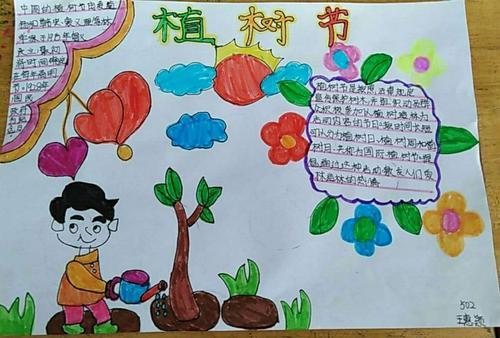 植树节
中国的植树节由凌道
扬和韩安、裴义理等林
学家于1915年倡议
设立,最初
将时间确定
在每年清明
节。1928年
国民
植树节是按照法律规定
宣传保护树木,并组织动员群
众积极参加以植树造林为
活动内容的节日。按时间长短
可以分为植树日、植树周和植
树月,共称为国际植树节。提
倡通过这种活动,激发人们爱
林造林的热情
502
王惠